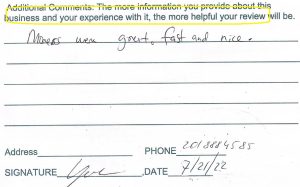 Additional Comments: The more information you provide about this
business and your experience with it, the more helpful your review will be.
Movers were great, fast and nice.
Address
PHONE 2018884585
SIGNATURE DATE 7/21/22